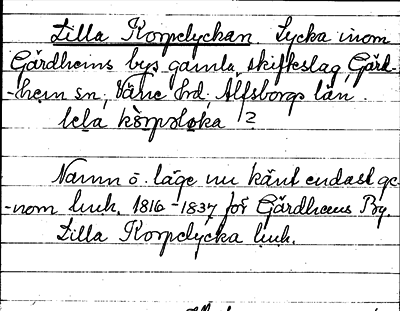 Lilla Korpelyckan Lycka inom
Gärdhems bys gamla skifteslag, Gärd-
-hem sn, Väne hd, Älfsborgs län.
lela kårpeloka 2
Namn o. läge nu känt endast ge-
-nom lmh. 1816-1837 för Gärdhems By.
Lilla Korpelycka lmh.